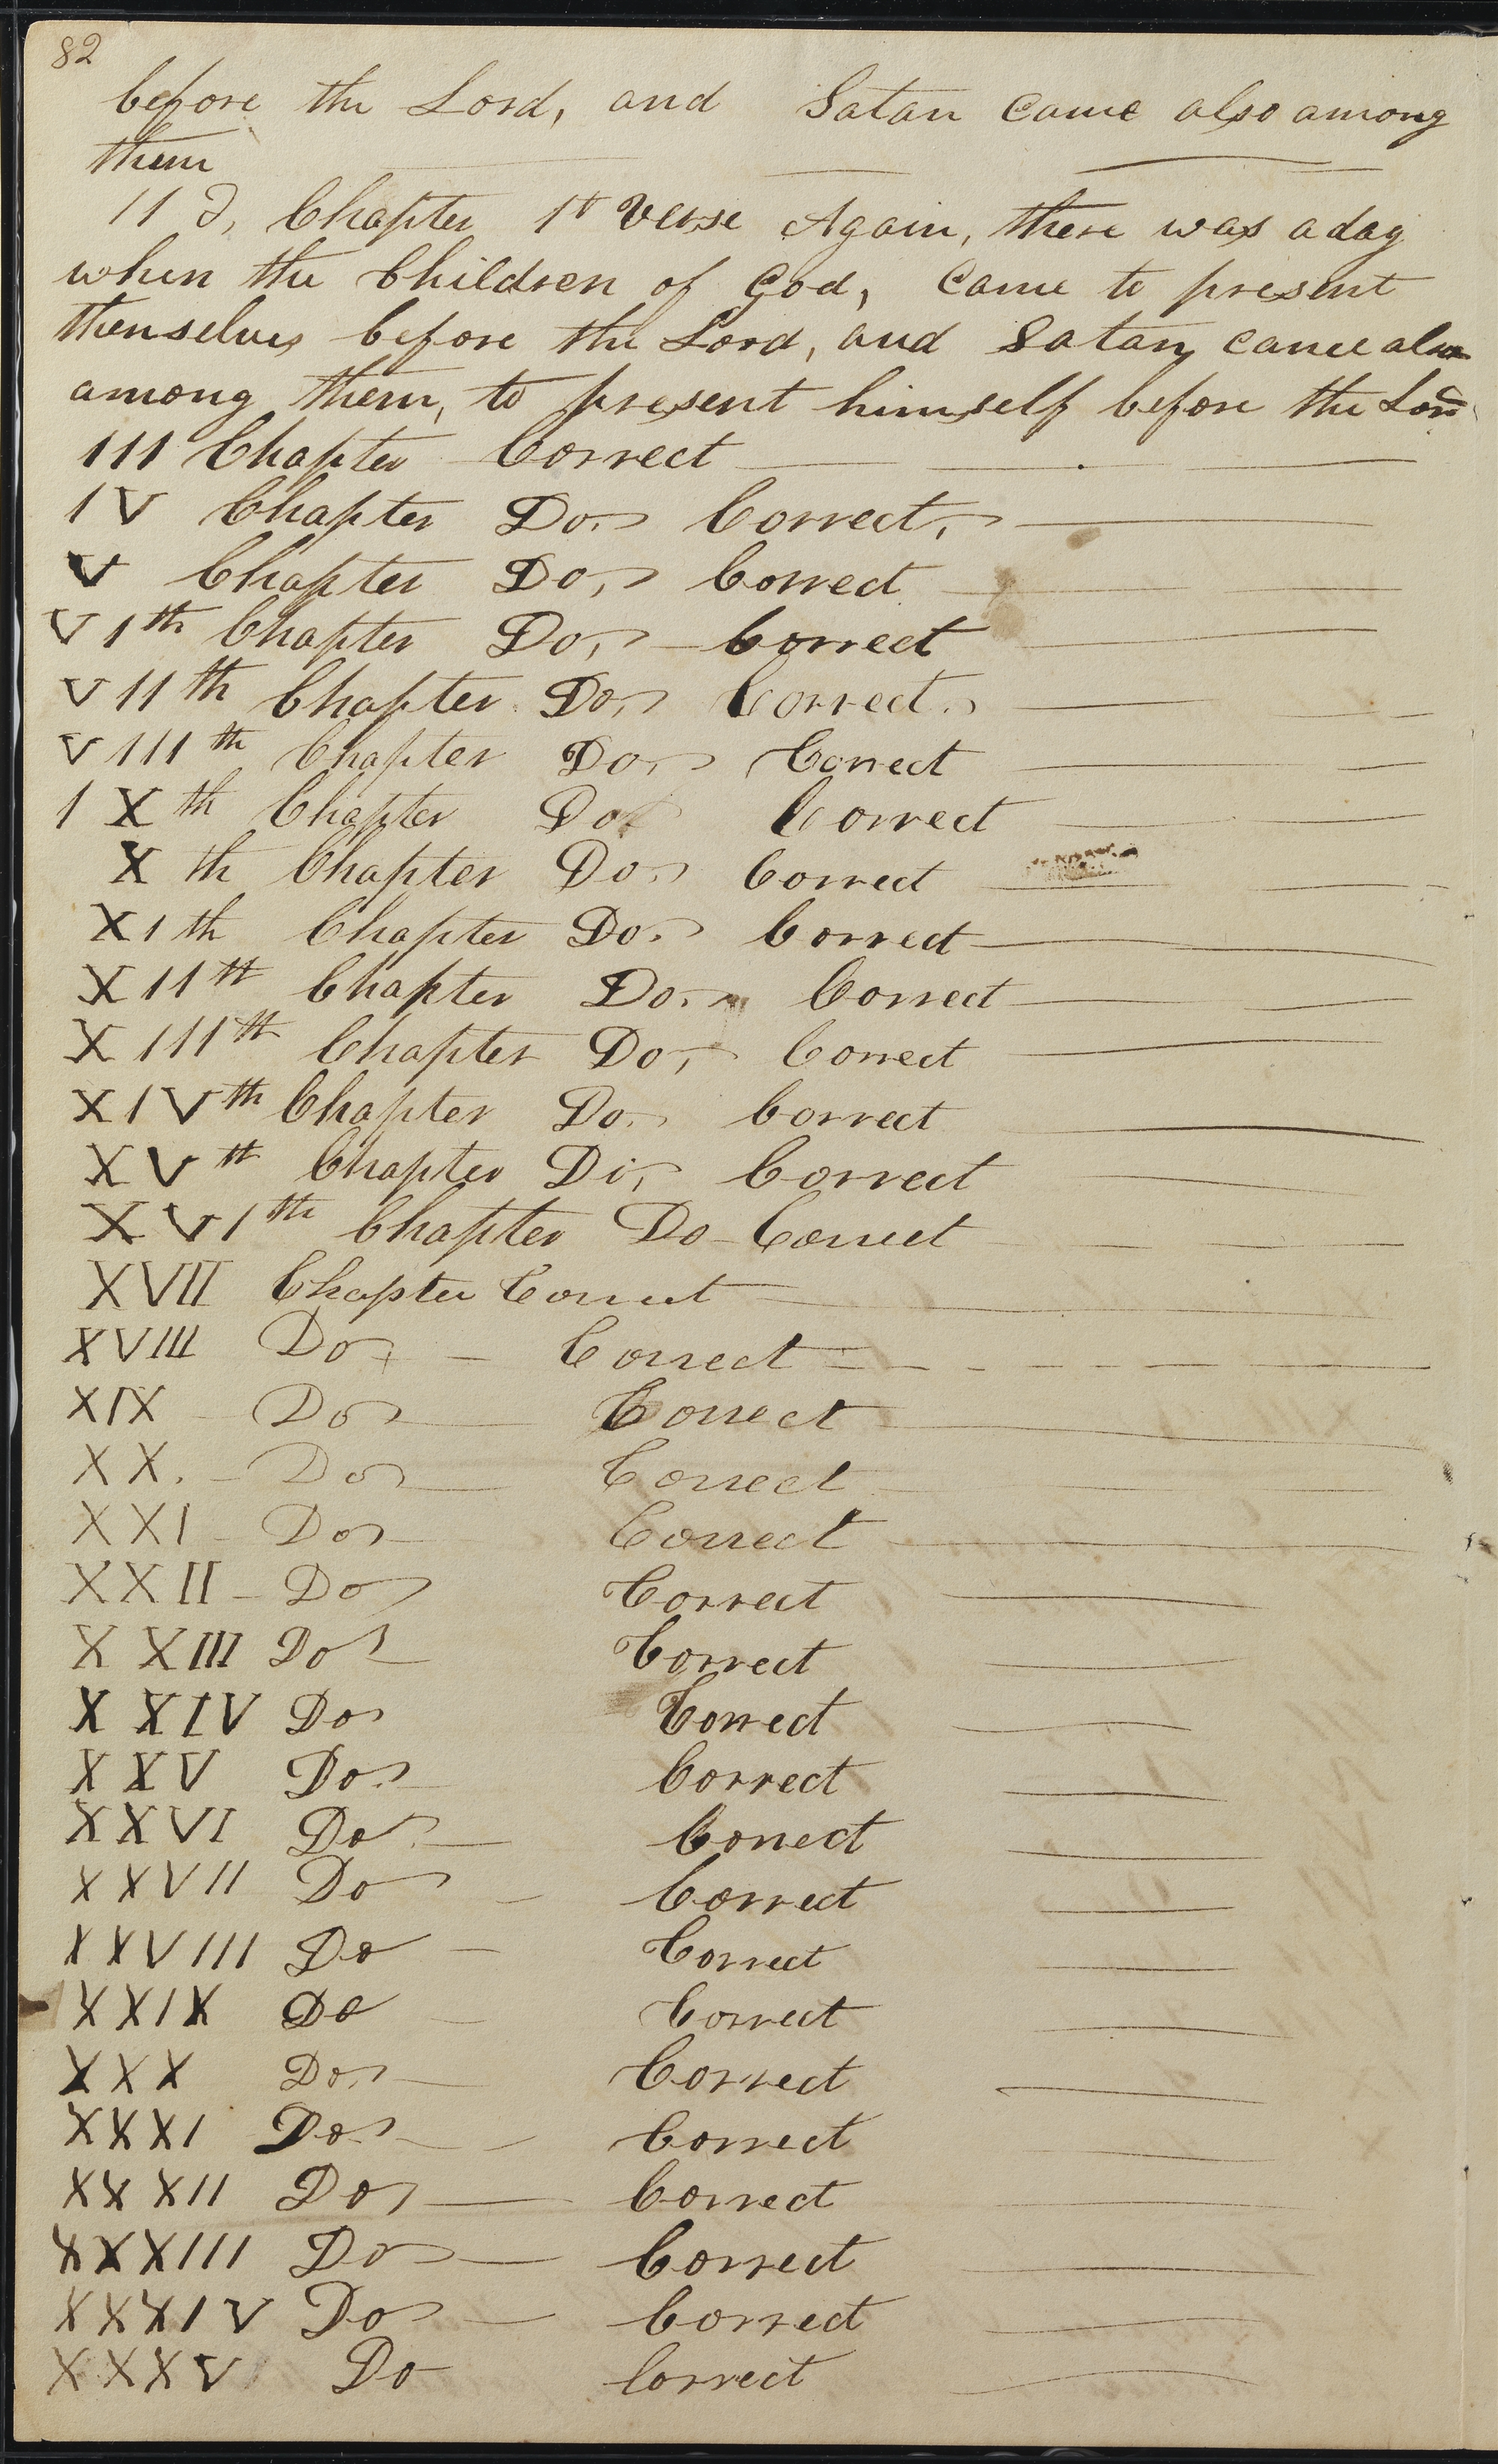 82
before the Lord, and Satan came also among
them
II d, Chapter 1st Verse Again, there was a day
when the Children of God, Came to present
themselves before the Lord, and Satan, came also
among them, to present himself before the Lord
III Chapter Correct
IV Chapter Do, Correct,
V Chapter Do, Correct
VIth Chapter Do, Correct
VIIth Chapter Do, Correct.
VIIIth Chapter Do, Correct
IXth Chapter Do Correct
Xth Chapter Do, Correct
XIth Chapter Do. Correct
XIIth Chapter Do. Correct
XIIIth Chapter Do, Correct
XIVth Chapter Do. Correct
XVth Chapter Di, Correct
XVIth Chapter Do Correct
XVII Chapter Correct
XVIII Do - Correct
XIX Do Correct
XX. - Do Correct
XXI - Do Correct
XXII - Do Correct
XXIII Do Correct
XXIV Do Correct
XXV Do. Correct
XXVI Do. Correct
XXVII Do - Correct
XXVIII Do - Correct
XXIX Do - Correct
XXX Do. Correct
XXXI Do. Correct
XXXII Do Correct
XXXIII Do Correct
XXXIV Do Correct
XXXV Do Correct